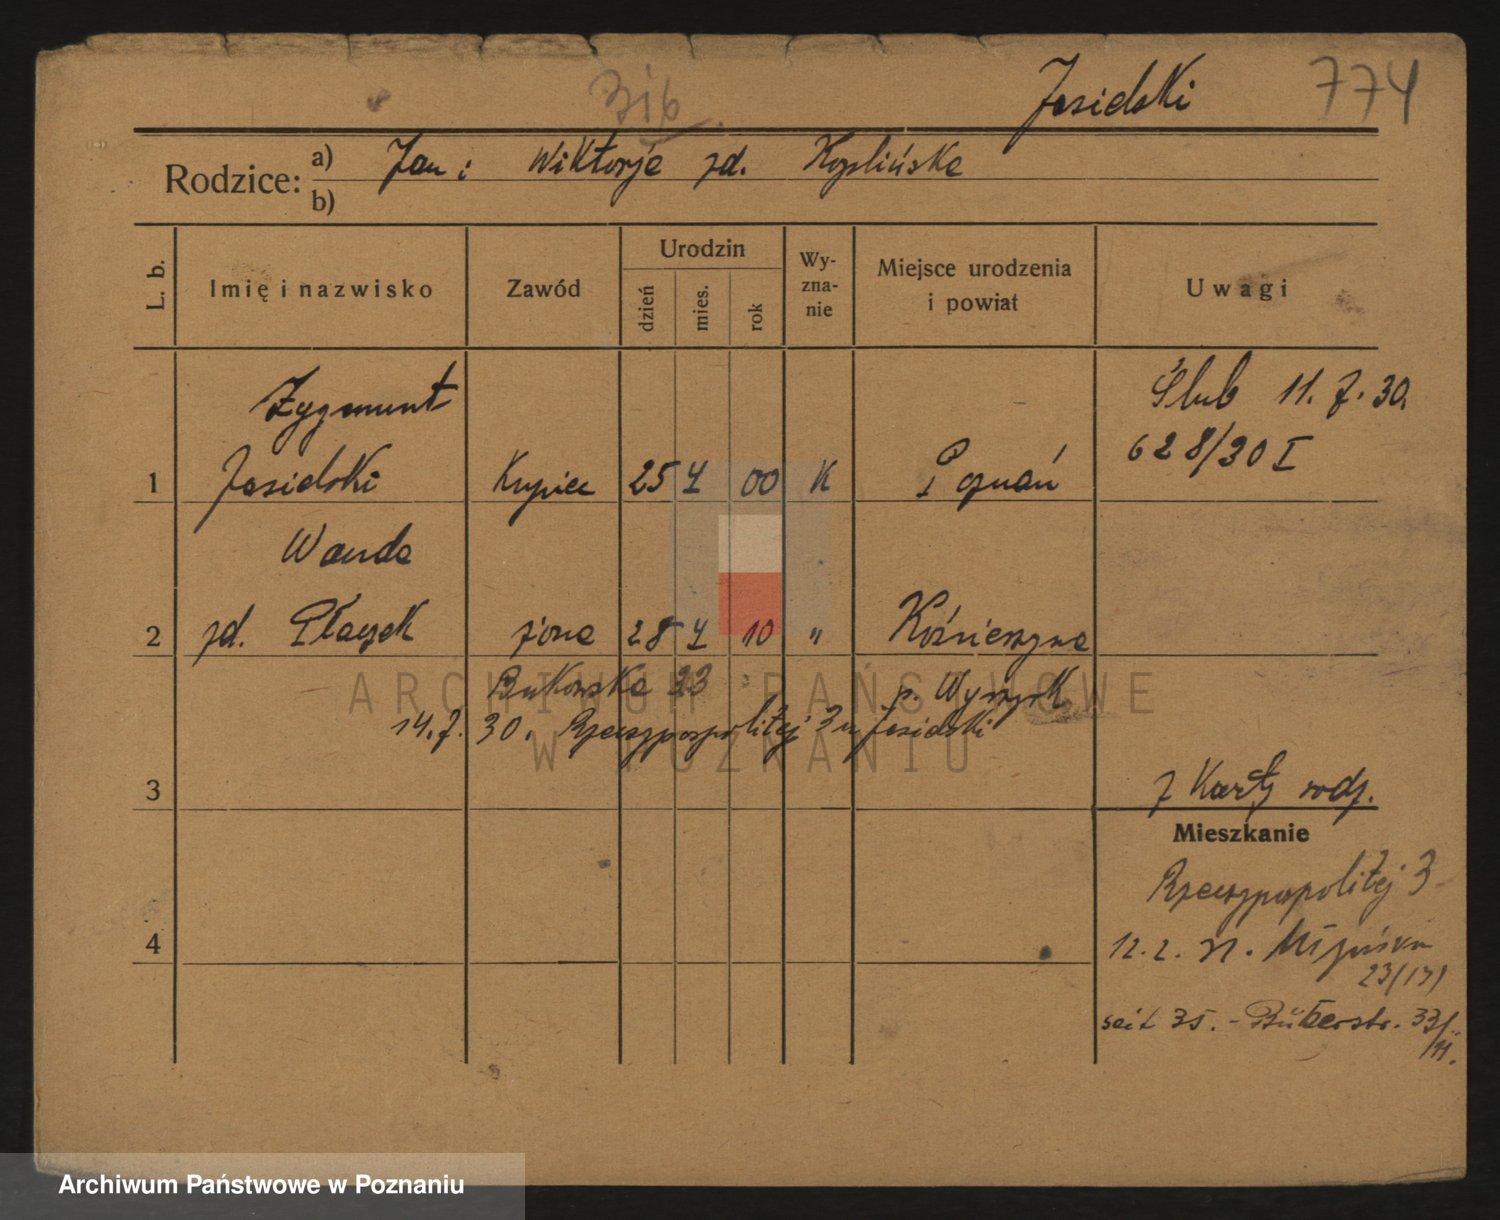 Jasielski 774
Rodzice: a) Jan i Wiktorja zd.
b)
L. b. Imię i nazwisko Zawód Urodzin dzień mies. rok Wy-zna-nie Miejsce urodzenia i powiat Uwagi
Zygmunt Ślub 11. 7. 30.
628/30 I
1 Jasielski Kupiec 25 4 00 K Poznań
Wanda
2 zd. Płaczek żona 28 4 10 "
Bukowska 33 p. Wyrzysk
14. 7. 30. Rzeczypospolitej 3 u Jasielski
3 z Karty rodz.
Mieszkanie
Rzeczypospolitej 3
4 12. 2. 31.
23/13)
seit 35. - 33/
11.
ARCHIWUM PAŃSTWOWE
W POZNANIU
Archiwum Państwowe w Poznaniu